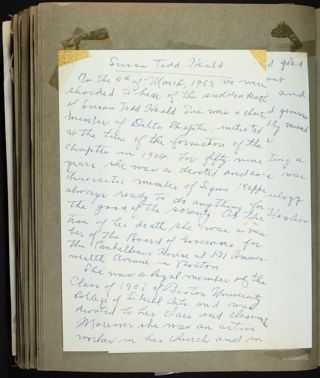 Susan Todd Heald
On the 4th of March, 1963 we were
shocked to hear of the sudden death
of Susan Todd Heald. Sue was a charter
member of Delta Chapter, initiated
at the time of the formation of the
Chapter in 1904. For fifty nine
years she was a devoted and
enthusiastic member of Sigma Kappa,
always ready to do anything for
the good of the sorority. At the
time of her death she was a mem
ber of the Board of Governors for
the Panhellenic House at 131 Common
wealth Avenue in Boston.
She was a loyal member of the
Class of 1906 of Boston University
College of Liberal Arts and was
devoted to her class and classmates
Moreover she was an active
worker in her church and in